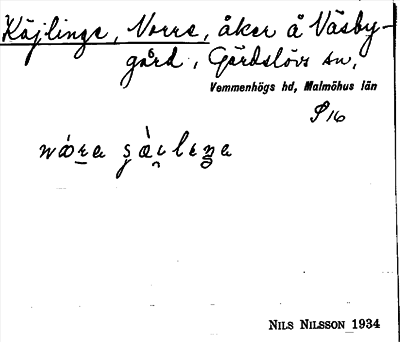 Käjlinge, Norre, åker å Väsby-
gård, Gärdslövs sn,
Vemmenhögs hd, Malmöhus län
P16
NILS NILSSON 1934